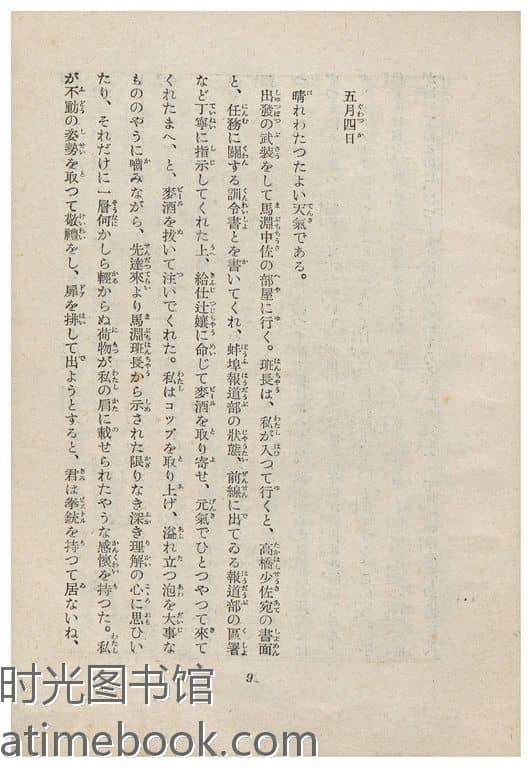 五月四日
晴れわたつたよい天氣である。
出發の武裝をして馬淵中佐の部屋に行く。班長は、私が入つて行くと、高橋少佐宛の書面
と、任務に關する訓令書とを書いてくれ、蚌埠報道部の狀態、前線に出てゐる報道部の區署
など丁寧に指示してくれた上、給仕辻孃に命じて麥酒を取り寄せ、元氣でひとつやつて來て
くれたまへ、と、麥酒を拔いて注いでくれた。私はコップを取り上げ、溢れ立つ泡を大事な
もののやうに嚙みながら、先達來より馬淵班長から示された限りなき深き理解の心に思ひい
たり、それだけに一層何かしら輕からぬ荷物が私の肩に載せられたやうな感懷を持つた。私
が不動の姿勢を取つて敬禮をし、扉を排して出ようとすると、君は拳銃を持つて居ないね、
9
时光图书馆
atimebook.com